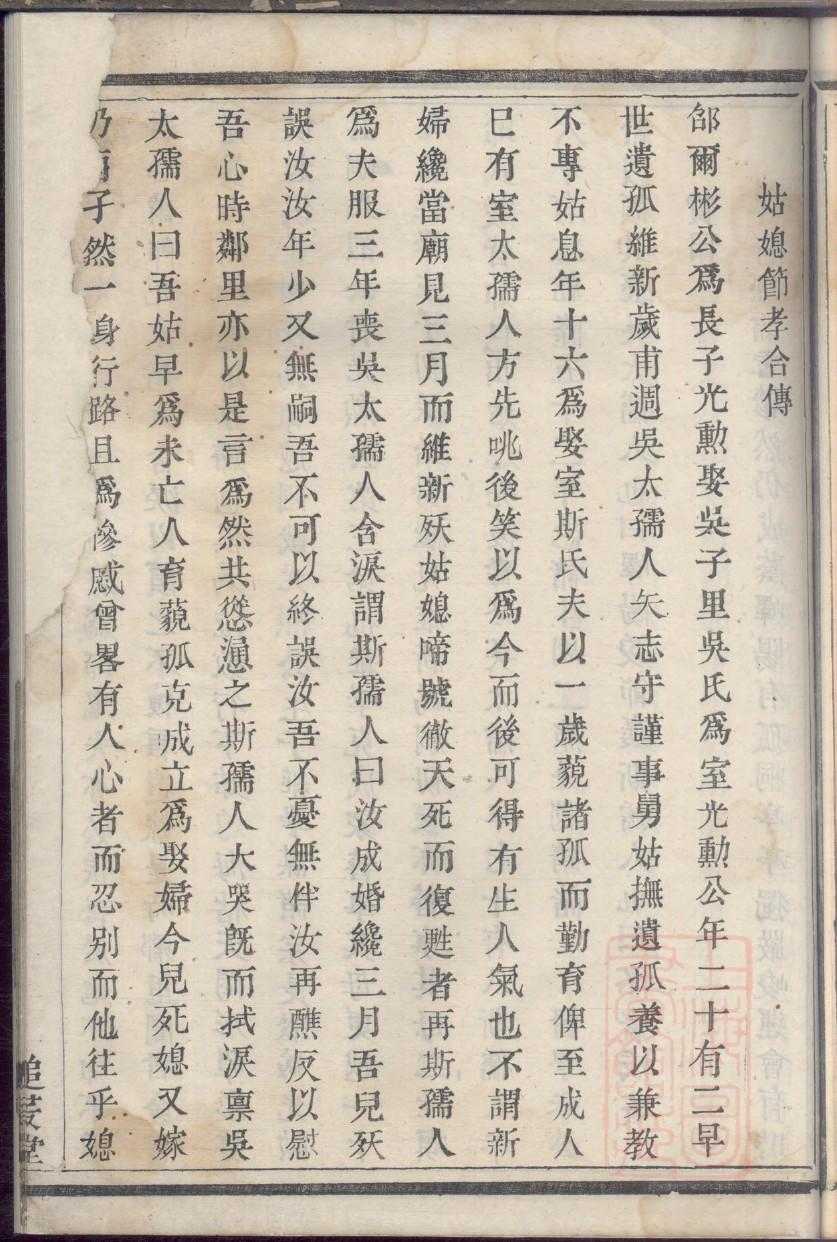 姑媳節孝合傳
郃爾彬公爲長子光勳娶吳子里吳氏爲室光勳公年二十有二早
世遺孤維新歲甫週吳太孺人矢志守謹事舅姑撫遺孤養以兼教
不專姑息年十六爲娶室斯氏夫以一歲藐諸孤而勤育俾至成人
巳有室太孺人方先咷後笑以爲今而後可得有生人氣也不謂新
婦纔當廟見三月而維新殀姑媳啼號徹天死而復甦者再斯孺人
爲夫服三年喪吳太孺人含淚謂斯孺人曰汝成婚纔三月吾兒殀
誤汝汝年少又無嗣吾不可以終誤汝吾不憂無伴汝再醮反以慰
吾心時鄰里亦以是言爲然共慫恿之斯孺人大哭旣而拭淚禀吳
太孺人曰吾姑早爲未亡人育藐孤克成立爲娶婦今兒死媳又嫁
乃子然一身行路且爲慘慼曾畧有人心者而忍别而他往乎媳
追荾堂